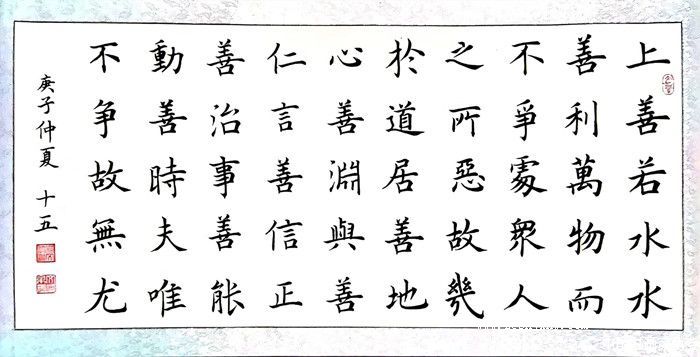 上善若水水
善利萬物而
不爭處衆人
之所惡故幾
於道居善地
心善淵與善
仁言善信正
善治事善能
動善時夫唯
不争故無尤
庚子仲夏 十五